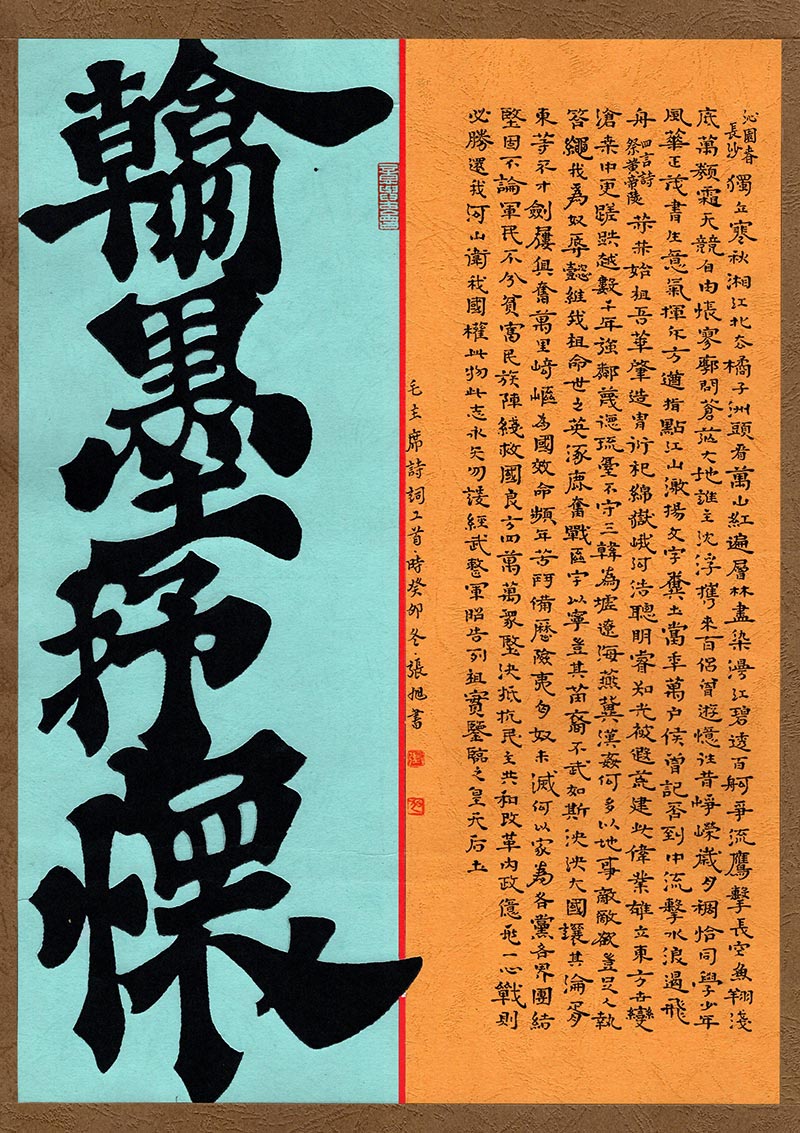 沁園春
長沙
獨立寒秋湘江北去橘子洲頭看萬山紅遍層林盡染漫江碧透百舸爭流鷹擊長空魚翔淺
底萬類霜天競自由悵寥廓問蒼茫大地誰主沈浮攜來百侶曾遊憶往昔崢嶸歲月稠恰同學少年
風華正茂書生意氣揮斥方遒指點江山激揚文字糞土當年萬戶侯曾記否到中流擊水浪遏飛
舟
四言詩
祭黃帝陵
赫赫始祖吾華肇造胄衍祀綿嶽峨河浩聰明睿知光被遐荒建此偉業雄立東方世變
滄桑中更蹉跌越數千年強鄰蔑德琉臺不守三韓為墟遼海燕冀漢奸何多以地事敵敵欲豈足人執
笞繩我為奴辱懿維我祖命世之英涿鹿奮戰區宇以寧豈其苗裔不武如斯泱泱大國讓其淪胥
東等不才劍屨俱奮萬里崎嶇為國效命頻年苦鬥備歷險夷匈奴未滅何以家為各黨各界團結
堅固不論軍民不分貧富民族陣綫救國良方四萬萬衆堅決抵抗民主共和改革內政億兆一心戰則
必勝還我河山衛我國權此物此志永矢勿諼經武整軍昭告列祖實鑒臨之皇天后土
毛主席詩詞二首時癸卯冬張旭書
翰墨抒懷